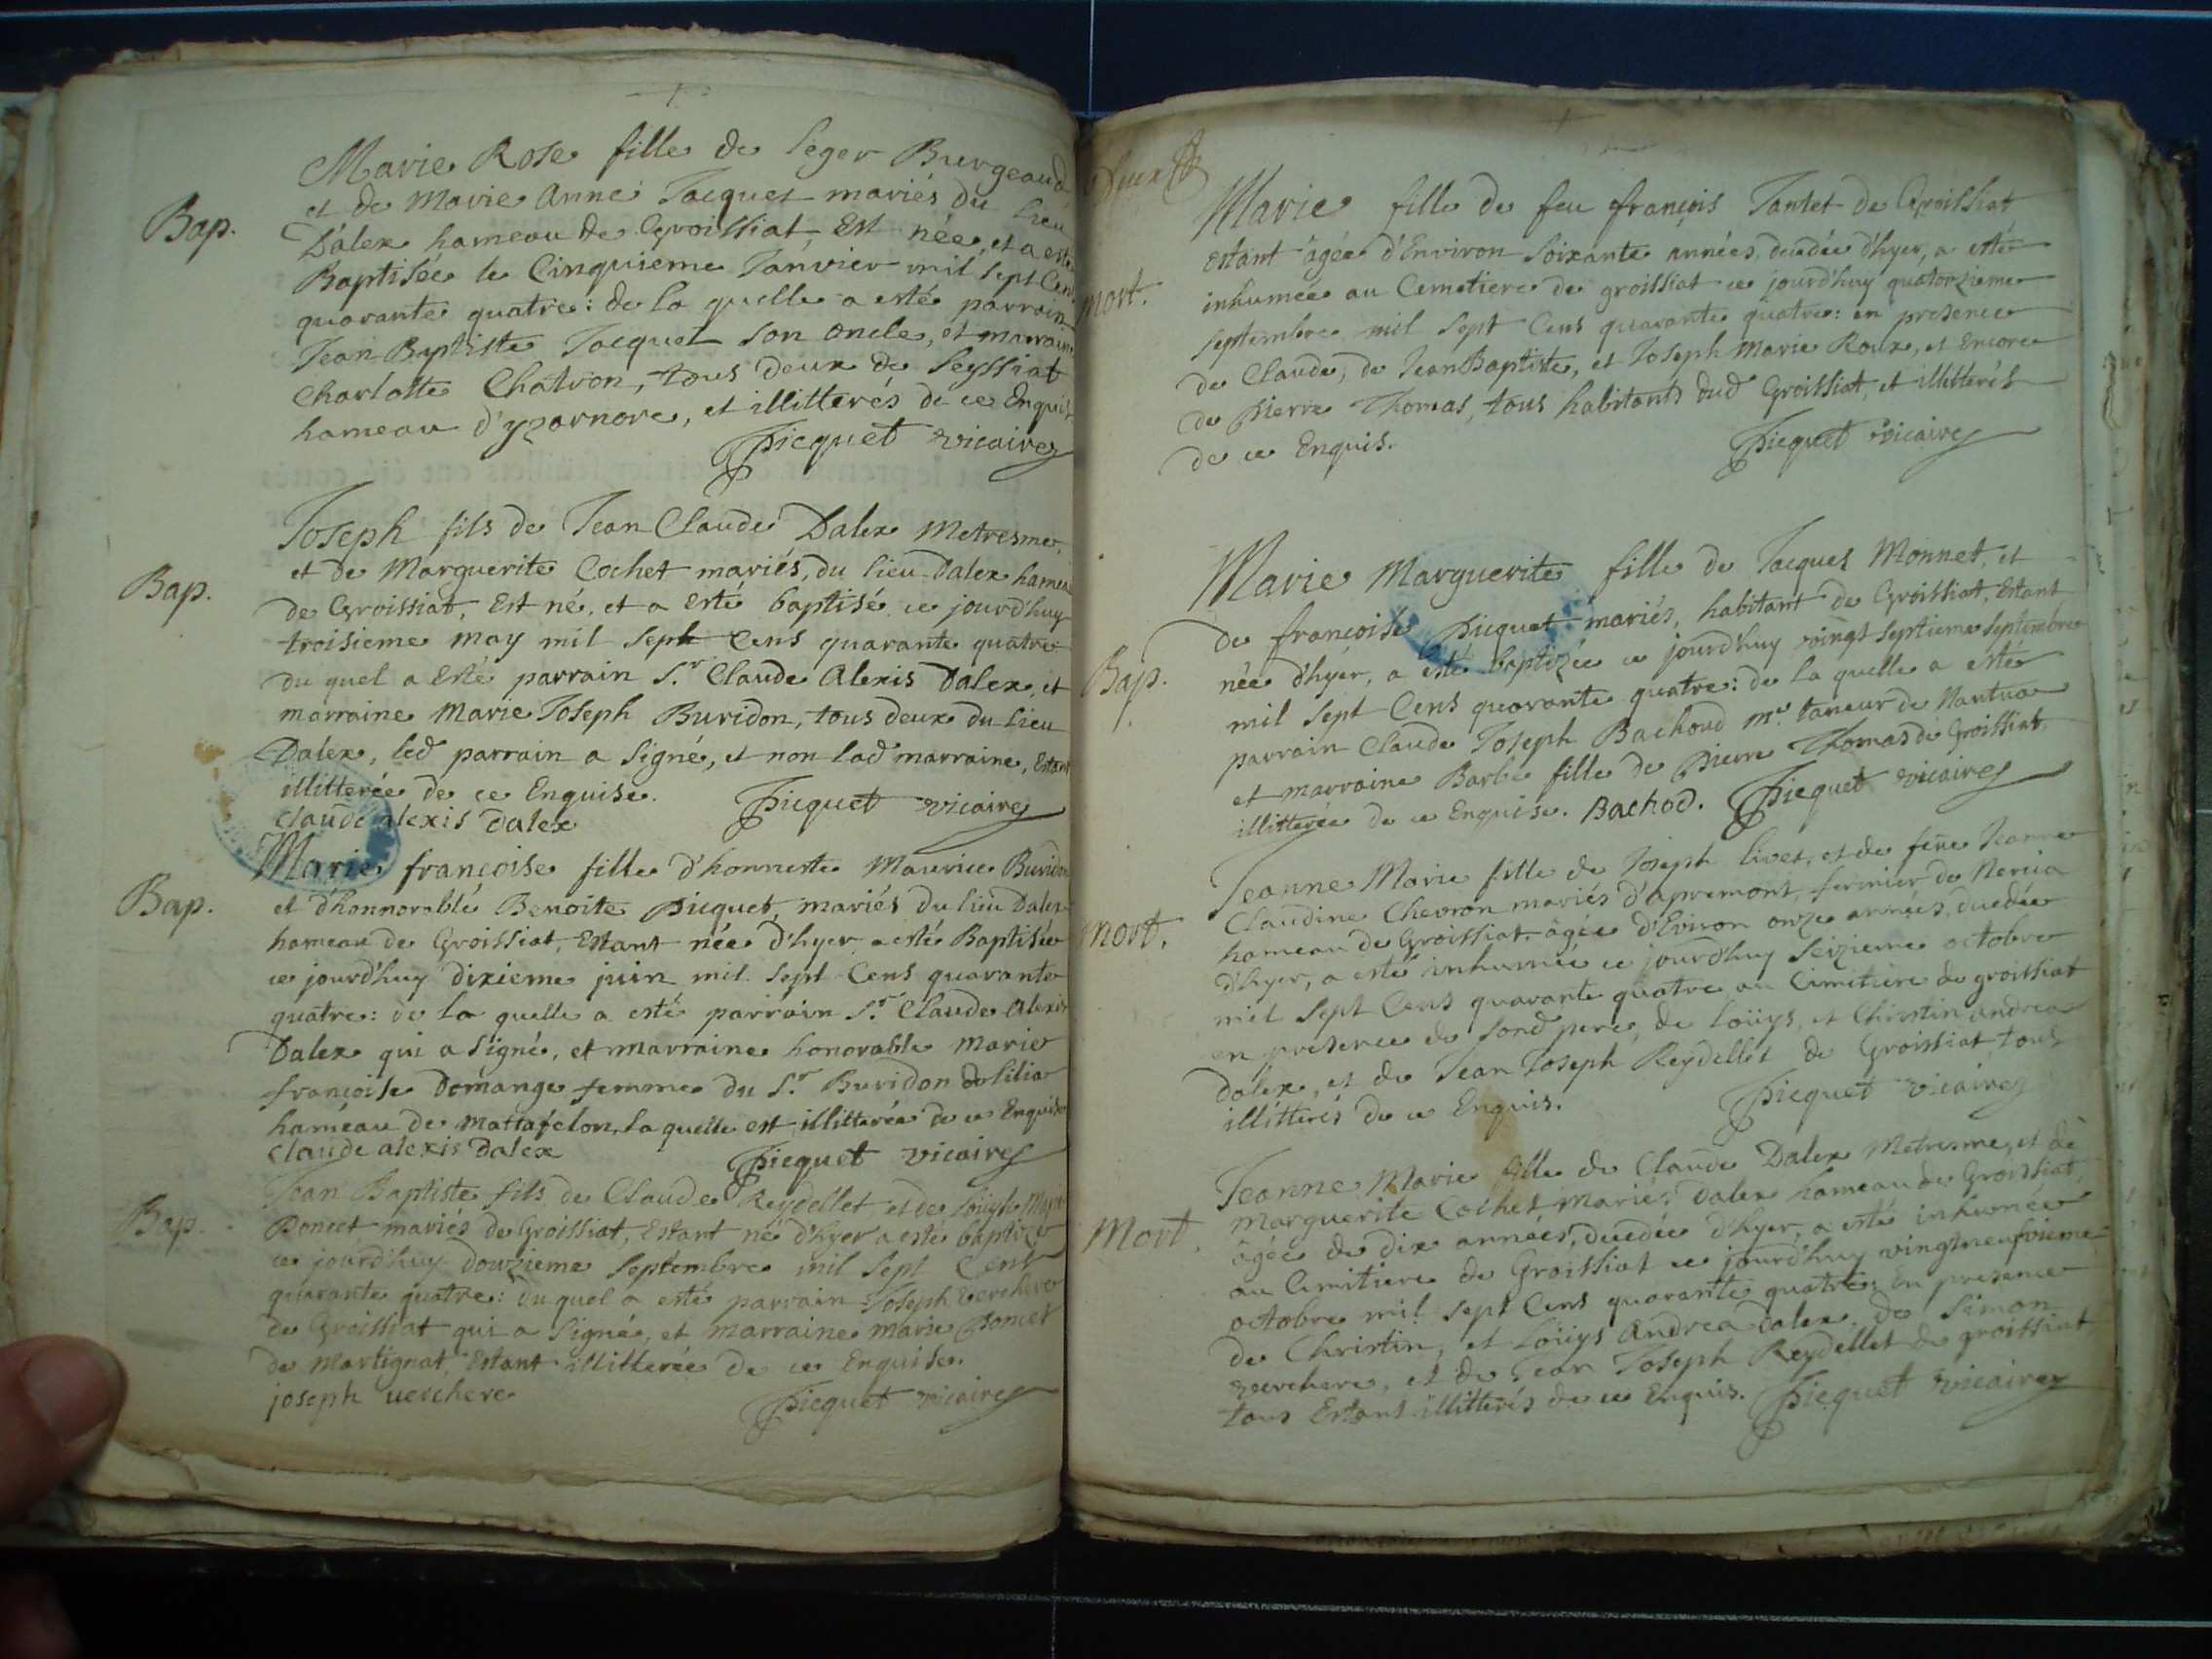 Marie Rose fille de leger Burgeaud
et de Marie Anne Jacquet mariés du lieu
Bap.
D'alex hameau de Groissiat, Est née, et a esté
Baptisée le Cinquieme Janvier mil sept Cens
quarante quatre : de la quelle a esté parrain
Jean Baptiste Jacquet son oncle, et marraine
Charlotte Chatron, tous deux de Seyssiat
hameau d'yzarnore, et illitterés de ce Enquis
Picquet vicaire
Joseph fils de Jean Claude Dalex Metresme,
et de Marguerite Cochet mariés, du lieu Dalex hameau
Bap.
de Groissiat, Est né, et a esté baptisé ce jourd'huy
troisieme may mil sept Cens quarante quatre
du quel a Esté parrain Sr. Claude Alexis Dalex, et
marraine Marie Joseph Buridon, tous deux du lieu
Dalex, led parrain a signé, et non lad marraine, Estant
illitterée de ce Enquise. Picquet vicaire
claude alexis Dalex
Marie françoise fille d'honneste Maurice Buridon
Bap.
et d'honnorable Benoite Picquet, mariés du lieu Dalex
hameau de Groissiat, Estant née d'hyer a esté Baptisée
ce jourd'huy dixieme juin mil sept Cens quarante
quatre : de la quelle a esté parrain Sr. Claude Alexis
Dalex qui a signé, et marraine honorable Marie
françoise Domange femme du Sr. Buridon de lilia
hameau de Mattafelon, la quelle est illitterée de ce Enquise
claude alexis Dalex Picquet vicaire
Jean Baptiste fils de Claude Reydellet et de
Bap.
Poncet mariés de Groissiat, Estant né d'hyer a esté baptizé
ce jourd'huy douzieme Septembre mil sept Cens
quarante quatre : du quel a esté parrain Joseph Verchere
de Groissiat qui a signé, et marraine marie Poncet
de Martignat, Estant illitterée de ce Enquise.
joseph uerchere Picquet vicaire
Deux
Marie fille de feu françois Tantet de Groissiat
Estant âgée d'Environ soixante années, decedée d'hyer, a esté
mort.
inhumée au Cemetiere de groissiat ce jourd'huy quatorzieme
septembre mil sept Cens quarante quatre : en presence
de Claude, de Jean Baptiste, et Joseph Marie Roux, et Encore
de Pierre Thomas, tous habitants dud Groissiat, et illitterés
de ce Enquis. Picquet vicaire
Marie Marguerite fille de Jacques Monnet, et
de françoise Picquet mariés, habitant de Groissiat, Estant
Bap.
née d'hyer, a esté baptizée ce jourd'huy vingt septieme septembre
mil sept Cens quarante quatre : de la quelle a esté
parrain Claude Joseph Bachoud me. taneur de Nantua
et marraine Barbe fille de Pierre Thomas de Groissiat,
illitterée de ce Enquise. Bachod. Picquet vicaire
Jeanne Marie fille de Joseph livet, et de feüe Jeanne
Claudine Chevron mariés d'apremont, fermier de Nercia
mort.
hameau de Groissiat, âgée d'Eviron onze années, decedée
d'hyer, a esté inhumée ce jourd'huy seizieme octobre
mil sept Cens quarante quatre au Cimitiere de groissiat
en presence de sond pere, de loüys, et Christin andrea
dalex, et de Jean Joseph Reydellet de Groissiat, tous
illitterés de ce Enquis. Picquet vicaire
Jeanne Marie fille de Claude Dalex Metresme, et de
Marguerite Cochet mariés, Dalex hameau de Groissiat,
Mort.
âgée de dix années, decedée d'hyer, a esté inhumée
au Cimitiere de Groissiat ce jourd'huy vingtneufvieme
octobre mil sept Cens quarante quatre, En presence
de Christin, et loüys Andrea Dalex, de Simon
verchere, et de Jean Joseph Reydellet de groissiat
tous Estant illitterés de ce Enquis. Picquet vicaire